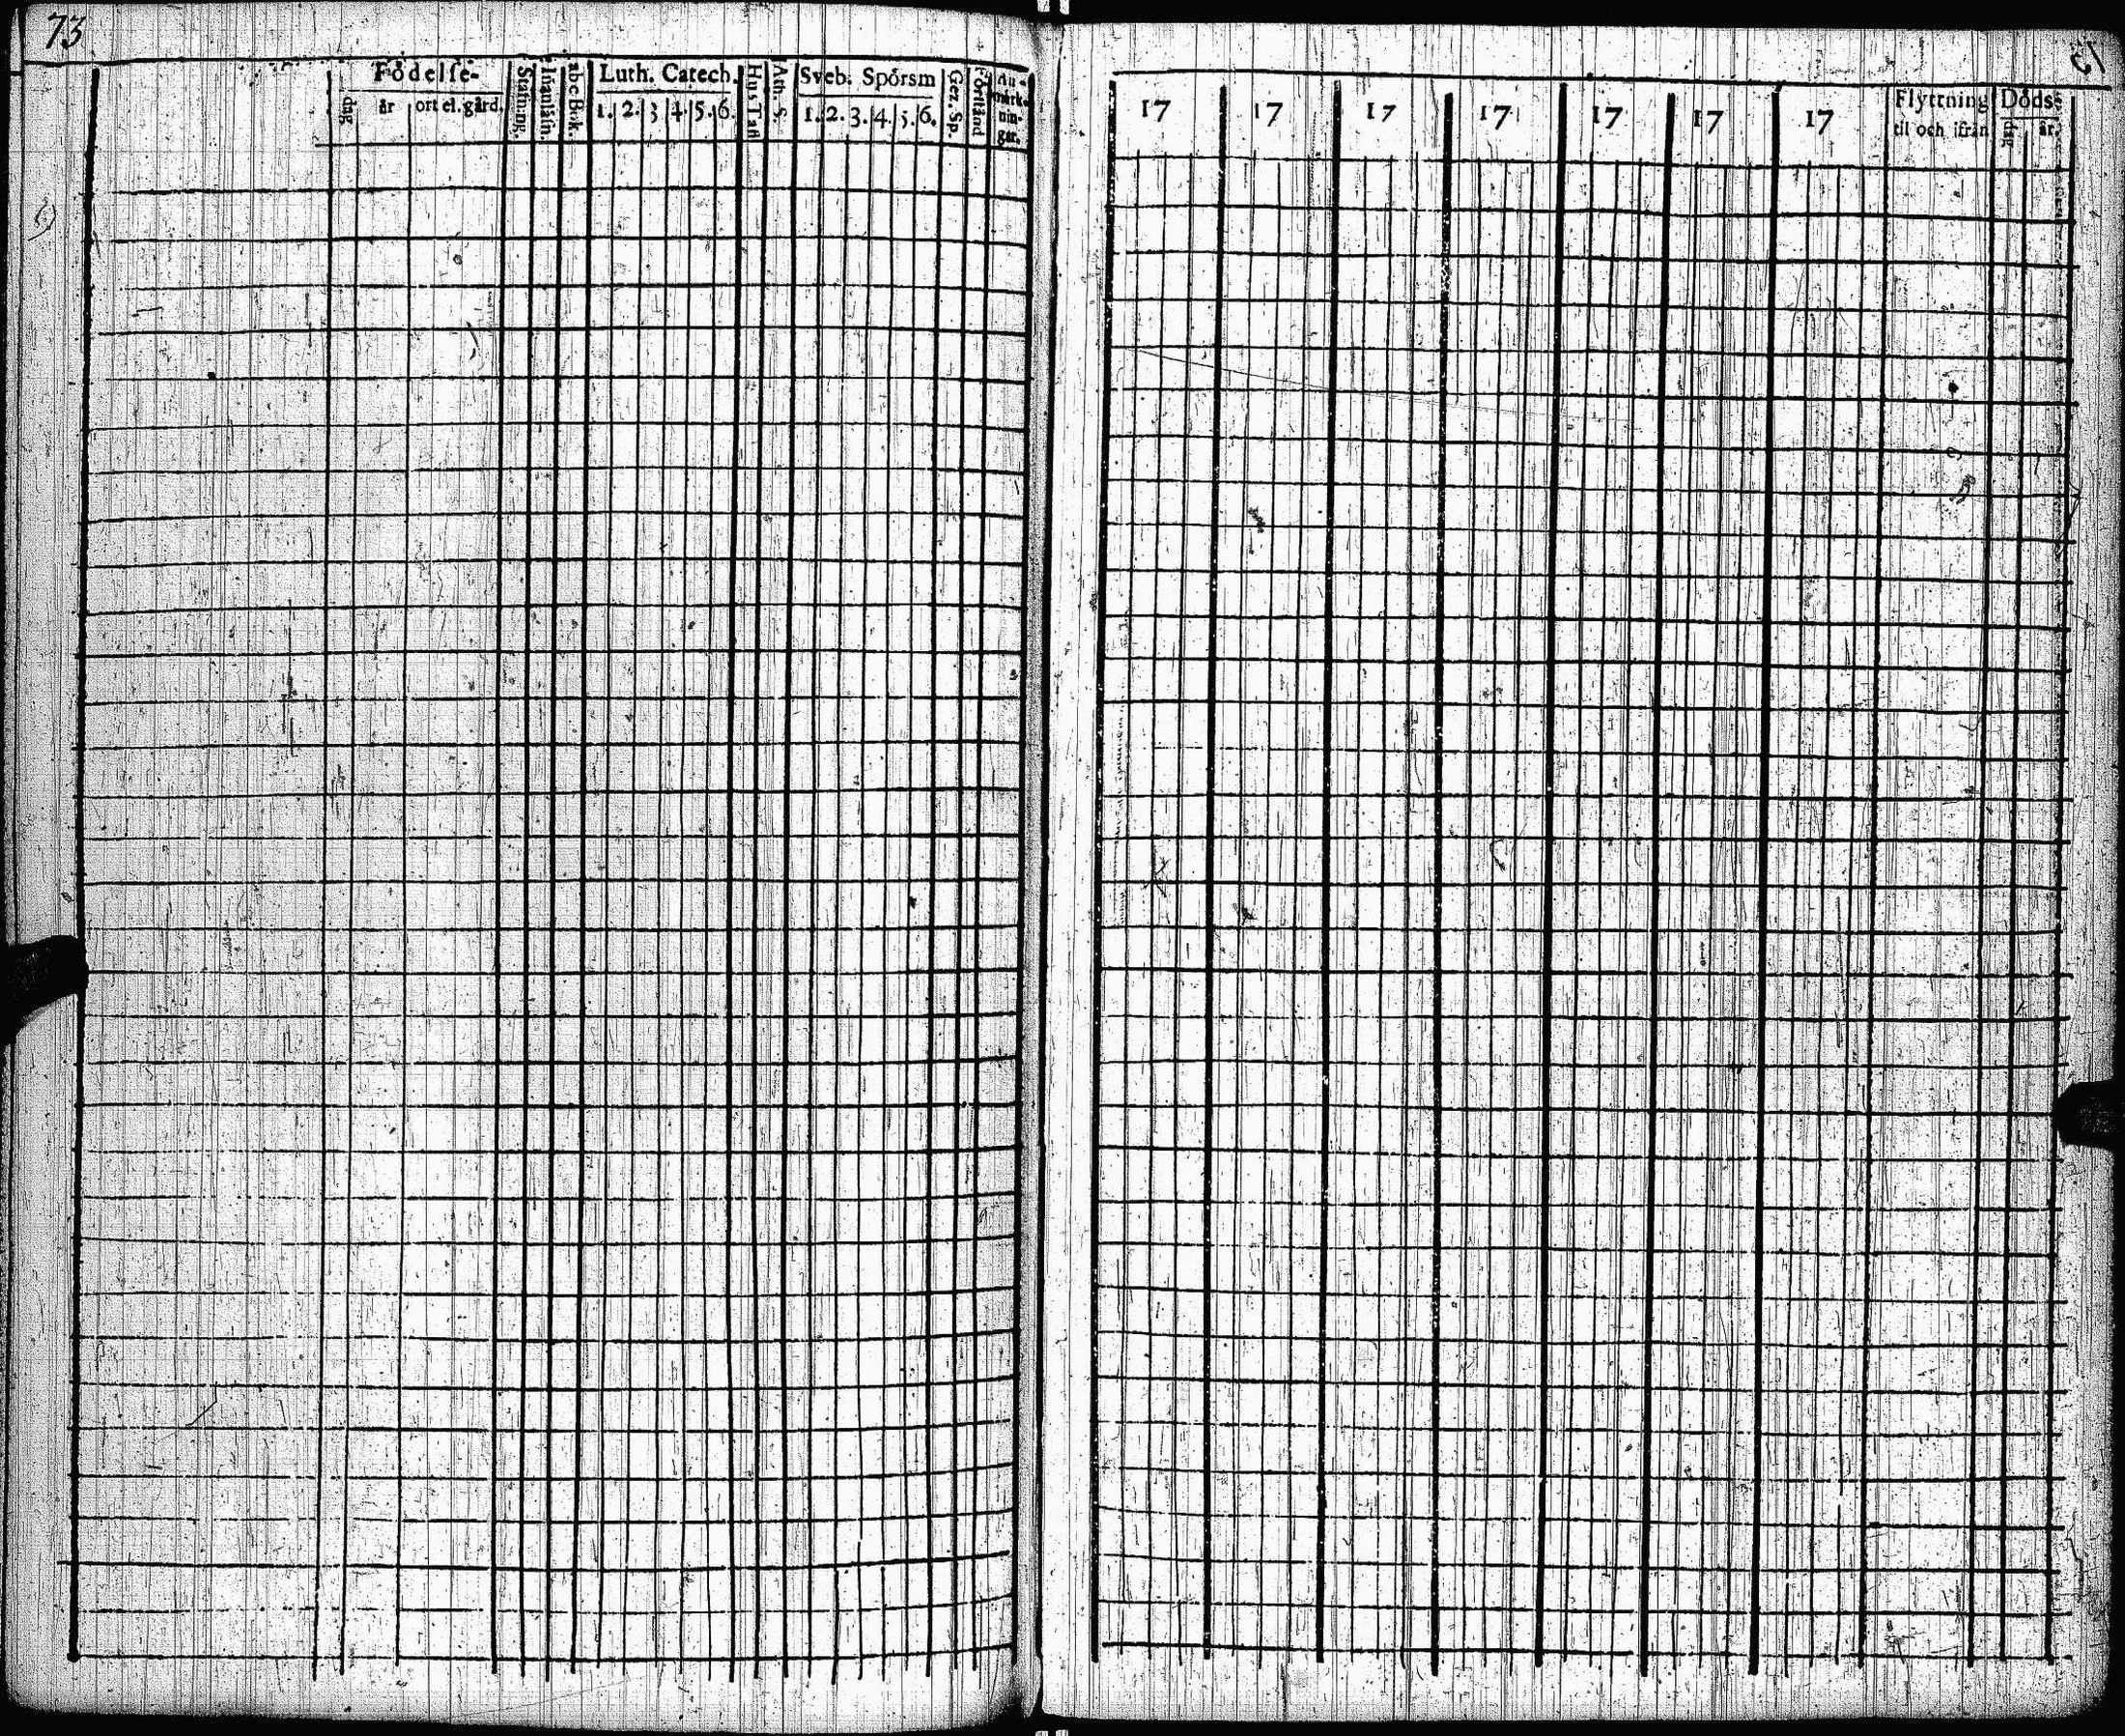 73
Födelse-
dag år ort el. gård.
Stafning.
Innanläsn.
abc Bok.
Luth. Catech.
1. 2. 3 4. 5. 6.
Hus Tafl
Ath. S.
Sveb. Spörsm
1. 2. 3. 4. 5. 6.
Gez. Sp.
Förstånd
An-
märk-
nin-
gar.
17 17 17 17 17 17 17
Flyttning
til och ifrån
Döds-
dag år.